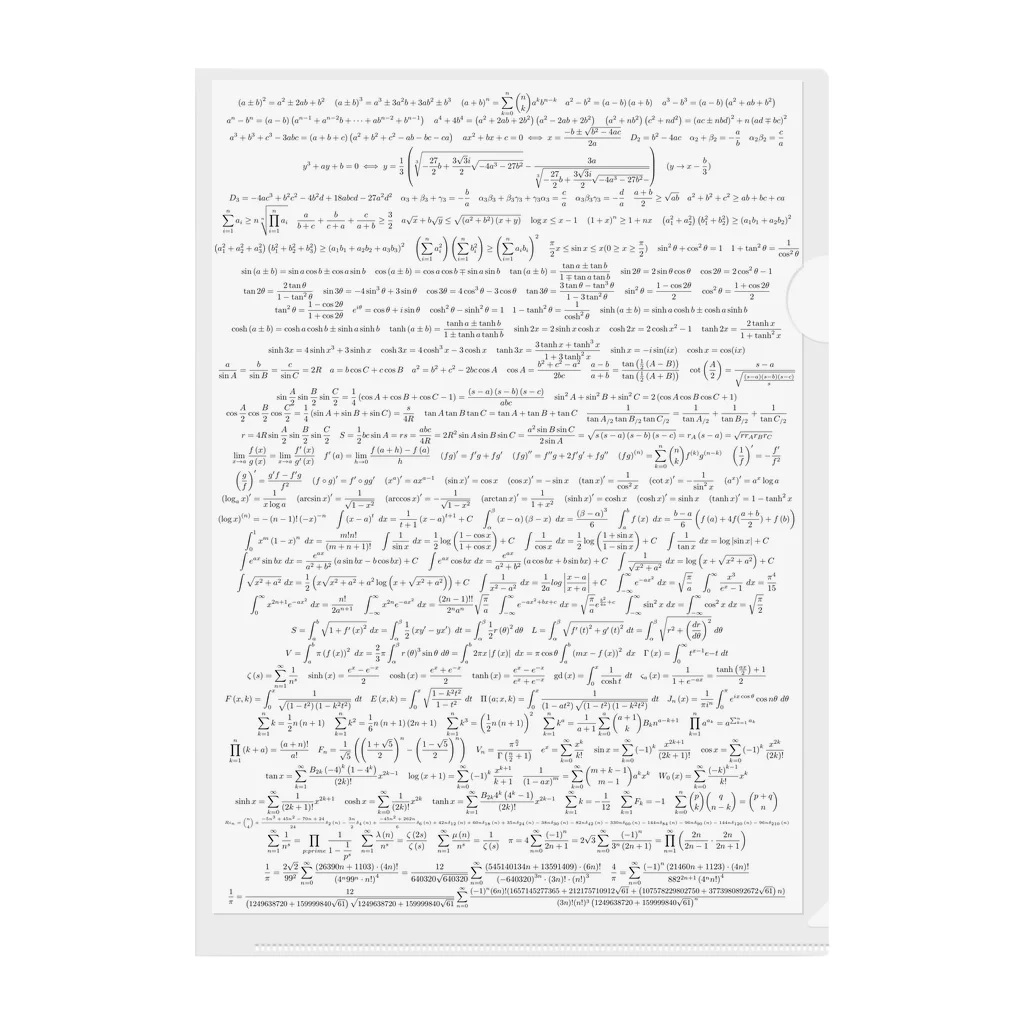 (a ± b)² = a² ± 2ab + b² (a ± b)³ = a³ ± 3a²b + 3ab² ± b³ (a + b)ⁿ = ∑_{k=0}^{n} (n k) aᵏbⁿ⁻ᵏ a² − b² = (a − b)(a + b) a³ − b³ = (a − b)(a² + ab + b²)
aⁿ − bⁿ = (a − b)(aⁿ⁻¹ + aⁿ⁻²b + ⋯ + abⁿ⁻² + bⁿ⁻¹) a⁴ + 4b⁴ = (a² + 2ab + 2b²)(a² − 2ab + 2b²) (a² + nb²)(c² + nd²) = (ac ± nbd)² + n(ad ∓ bc)²
a³ + b³ + c³ − 3abc = (a + b + c)(a² + b² + c² − ab − bc − ca) ax² + bx + c = 0 ⟺ x = (−b ± √(b² − 4ac))/2a D₂ = b² − 4ac α₂ + β₂ = −b/a α₂β₂ = c/a
y³ + ay + b = 0 ⟺ y = 1/3 (∛(−27/2 b + 3√3i/2 √(−4a³ − 27b²)) − 3a/∛(−27/2 b + 3√3i/2 √(−4a³ − 27b²−))) (y → x − b/3)
D₃ = −4ac³ + b²c² − 4b³d + 18abcd − 27a²d² α₃ + β₃ + γ₃ = −b/a α₃β₃ + β₃γ₃ + γ₃α₃ = c/a α₃β₃γ₃ = −d/a (a + b)/2 ≥ √ab a² + b² + c² ≥ ab + bc + ca
∑_{i=1}^{n} aᵢ ≥ n ⁿ√(∏_{i=1}^{n} aᵢ) a/(b + c) + b/(c + a) + c/(a + b) ≥ 3/2 a√x + b√y ≤ √((a² + b²)(x + y)) log x ≤ x − 1 (1 + x)ⁿ ≥ 1 + nx (a₁² + a₂²)(b₁² + b₂²) ≥ (a₁b₁ + a₂b₂)²
(a₁² + a₂² + a₃²)(b₁² + b₂² + b₃²) ≥ (a₁b₁ + a₂b₂ + a₃b₃)² (∑_{i=1}^{n} aᵢ²)(∑_{i=1}^{n} bᵢ²) ≥ (∑_{i=1}^{n} aᵢbᵢ)² π/2 x ≤ sin x ≤ x(0 ≥ x ≥ π/2) sin² θ + cos² θ = 1 1 + tan² θ = 1/cos² θ
sin (a ± b) = sin a cos b ± cos a sin b cos (a ± b) = cos a cos b ∓ sin a sin b tan (a ± b) = (tan a ± tan b)/(1 ∓ tan a tan b) sin 2θ = 2 sin θ cos θ cos 2θ = 2 cos² θ − 1
tan 2θ = 2 tan θ/(1 − tan² θ) sin 3θ = −4 sin³ θ + 3 sin θ cos 3θ = 4 cos³ θ − 3 cos θ tan 3θ = (3 tan θ − tan³ θ)/(1 − 3 tan² θ) sin² θ = (1 − cos 2θ)/2 cos² θ = (1 + cos 2θ)/2
tan² θ = (1 − cos 2θ)/(1 + cos 2θ) e^{iθ} = cos θ + i sin θ cosh² θ − sinh² θ = 1 1 − tanh² θ = 1/cosh² θ sinh (a ± b) = sinh a cosh b ± cosh a sinh b
cosh (a ± b) = cosh a cosh b ± sinh a sinh b tanh (a ± b) = (tanh a ± tanh b)/(1 ± tanh a tanh b) sinh 2x = 2 sinh x cosh x cosh 2x = 2 cosh x² − 1 tanh 2x = 2 tanh x/(1 + tanh² x)
sinh 3x = 4 sinh x³ + 3 sinh x cosh 3x = 4 cosh³ x − 3 cosh x tanh 3x = (3 tanh x + tanh³ x)/(1 + 3 tanh² x) sinh x = −i sin(ix) cosh x = cos(ix)
a/sin A = b/sin B = c/sin C = 2R a = b cos C + c cos B a² = b² + c² − 2bc cos A cos A = (b² + c² − a²)/2bc (a − b)/(a + b) = tan(1/2 (A − B))/tan(1/2 (A + B)) cot (A/2) = (s − a)/√((s−a)(s−b)(s−c)/s)
sin A/2 sin B/2 sin C/2 = 1/4 (cos A + cos B + cos C − 1) = (s − a)(s − b)(s − c)/abc sin² A + sin² B + sin² C = 2 (cos A cos B cos C + 1)
cos A/2 cos B/2 cos C/2 = 1/4 (sin A + sin B + sin C) = s/4R tan A tan B tan C = tan A + tan B + tan C 1/(tan A/2 tan B/2 tan C/2) = 1/tan A/2 + 1/tan B/2 + 1/tan C/2
r = 4R sin A/2 sin B/2 sin C/2 S = 1/2 bc sin A = rs = abc/4R = 2R² sin A sin B sin C = a² sin B sin C/2 sin A = √(s(s − a)(s − b)(s − c)) = r_A (s − a) = √(r r_A r_B r_C)
lim_{x→a} f(x)/g(x) = lim_{x→a} f′(x)/g′(x) f′(a) = lim_{h→0} (f(a + h) − f(a))/h (fg)′ = f′g + fg′ (fg)″ = f″g + 2f′g′ + fg″ (fg)⁽ⁿ⁾ = ∑_{k=0}^{n} (n k) f⁽ᵏ⁾g⁽ⁿ⁻ᵏ⁾ (1/f)′ = −f′/f²
(g/f)′ = (g′f − f′g)/f² (f ∘ g)′ = f′ ∘ gg′ (xᵃ)′ = axᵃ⁻¹ (sin x)′ = cos x (cos x)′ = − sin x (tan x)′ = 1/cos² x (cot x)′ = −1/sin² x (aˣ)′ = aˣ log a
(logₐ x)′ = 1/(x log a) (arcsin x)′ = 1/√(1 − x²) (arccos x)′ = −1/√(1 − x²) (arctan x)′ = 1/(1 + x²) (sinh x)′ = cosh x (cosh x)′ = sinh x (tanh x)′ = 1 − tanh² x
(log x)⁽ⁿ⁾ = −(n − 1)! (−x)⁻ⁿ ∫(x − a)ᵗ dx = 1/(t + 1) (x − a)ᵗ⁺¹ + C ∫_α^β (x − α)(β − x) dx = (β − α)³/6 ∫_a^b f(x) dx = (b − a)/6 (f(a) + 4f((a + b)/2) + f(b))
∫_0^1 xᵐ(1 − x)ⁿ dx = m!n!/(m + n + 1)! ∫ 1/sin x dx = 1/2 log((1 − cos x)/(1 + cos x)) + C ∫ 1/cos x dx = 1/2 log((1 + sin x)/(1 − sin x)) + C ∫ 1/tan x dx = log |sin x| + C
∫ e^{ax} sin bx dx = e^{ax}/(a² + b²) (a sin bx − b cos bx) + C ∫ e^{ax} cos bx dx = e^{ax}/(a² + b²) (a cos bx + b sin bx) + C ∫ 1/√(x² + a²) dx = log(x + √(x² + a²)) + C
∫ √(x² + a²) dx = 1/2 (x√(x² + a²) + a² log(x + √(x² + a²))) + C ∫ 1/(x² − a²) dx = 1/2a log |(x − a)/(x + a)| + C ∫_{−∞}^{∞} e^{−ax²} dx = √(π/a) ∫_0^∞ x³/(eˣ − 1) dx = π⁴/15
∫_0^∞ x²ⁿ⁺¹e^{−ax²} dx = n!/2aⁿ⁺¹ ∫_{−∞}^{∞} x²ⁿe^{−ax²} dx = (2n − 1)!!/2ⁿaⁿ √(π/a) ∫_{−∞}^{∞} e^{−ax²+bx+c} dx = √(π/a) e^{b²/4a + c} ∫_{−∞}^{∞} sin x² dx = ∫_{−∞}^{∞} cos x² dx = √(π/2)
S = ∫_a^b √(1 + f′(x)²) dx = ∫_α^β 1/2 (xy′ − yx′) dt = ∫_α^β 1/2 r(θ)² dθ L = ∫_α^β √(f′(t)² + g′(t)²) dt = ∫_α^β √(r² + (dr/dθ)²) dθ
V = ∫_a^b π(f(x))² dx = 2/3 π ∫_α^β r(θ)³ sin θ dθ = ∫_a^b 2πx |f(x)| dx = π cos θ ∫_a^b (mx − f(x))² dx Γ(x) = ∫_0^∞ tˣ⁻¹e−t dt
ζ(s) = ∑_{n=1}^{∞} 1/nˢ sinh(x) = (eˣ − e⁻ˣ)/2 cosh(x) = (eˣ + e⁻ˣ)/2 tanh(x) = (eˣ − e⁻ˣ)/(eˣ + e⁻ˣ) gd(x) = ∫_0^x 1/cosh t dt ςₐ(x) = 1/(1 + e^{−ax}) = (tanh(ax/2) + 1)/2
F(x, k) = ∫_0^x 1/√((1 − t²)(1 − k²t²)) dt E(x, k) = ∫_0^x √((1 − k²t²)/(1 − t²)) dt Π(a; x, k) = ∫_0^x 1/((1 − at²)√((1 − t²)(1 − k²t²))) dt Jₙ(x) = 1/πiⁿ ∫_0^π e^{ix cos θ} cos nθ dθ
∑_{k=1}^{n} k = 1/2 n(n + 1) ∑_{k=1}^{n} k² = 1/6 n(n + 1)(2n + 1) ∑_{k=1}^{n} k³ = (1/2 n(n + 1))² ∑_{k=1}^{n} kᵃ = 1/(a + 1) ∑_{k=0}^{a} (a + 1 k) Bₖnᵃ⁻ᵏ⁺¹ ∏_{k=1}^{n} a^{aₖ} = a^{∑_{k=1}^{n} aₖ}
∏_{k=1}^{n} (k + a) = (a + n)!/a! Fₙ = 1/√5 (((1 + √5)/2)ⁿ − ((1 − √5)/2)ⁿ) Vₙ = π^{n/2}/Γ(n/2 + 1) eˣ = ∑_{k=0}^{∞} xᵏ/k! sin x = ∑_{k=0}^{∞} (−1)ᵏ x²ᵏ⁺¹/(2k + 1)! cos x = ∑_{k=0}^{∞} (−1)ᵏ x²ᵏ/(2k)!
tan x = ∑_{k=1}^{∞} B₂ₖ(−4)ᵏ(1 − 4ᵏ)/(2k)! x²ᵏ⁻¹ log(x + 1) = ∑_{k=0}^{∞} (−1)ᵏ xᵏ⁺¹/(k + 1) 1/(1 − ax)ᵐ = ∑_{k=0}^{∞} (m + k − 1 m − 1) aᵏxᵏ W₀(x) = ∑_{k=1}^{∞} (−k)ᵏ⁻¹/k! xᵏ
sinh x = ∑_{k=0}^{∞} 1/(2k + 1)! x²ᵏ⁺¹ cosh x = ∑_{k=0}^{∞} 1/(2k)! x²ᵏ tanh x = ∑_{k=1}^{∞} B₂ₖ4ᵏ(4ᵏ − 1)/(2k)! x²ᵏ⁻¹ ∑_{k=1}^{∞} k = −1/12 ∑_{k=1}^{∞} Fₖ = −1 ∑_{k=0}^{n} (p k)(q n − k) = (p + q n)
∑_{n=1}^{∞} 1/nˢ = ∏_{p:prime} 1/(1 − 1/pˢ) ∑_{n=1}^{∞} λ(n)/nˢ = ζ(2s)/ζ(s) ∑_{n=1}^{∞} μ(n)/nˢ = 1/ζ(s) π = 4 ∑_{n=0}^{∞} (−1)ⁿ/(2n + 1) = 2√3 ∑_{n=0}^{∞} (−1)ⁿ/(3ⁿ(2n + 1)) = ∏_{n=1}^{∞} (2n/(2n − 1) 2n/(2n + 1))
1/π = 2√2/99² ∑_{n=0}^{∞} (26390n + 1103)·(4n)!/(4ⁿ99ⁿ·n!)⁴ = 12/(640320√640320) ∑_{n=0}^{∞} (545140134n + 13591409)·(6n)!/((−640320)³ⁿ·(3n)!·(n!)³) 4/π = ∑_{n=0}^{∞} (−1)ⁿ(21460n + 1123)·(4n)!/(882²ⁿ⁺¹(4ⁿn!)⁴)
1/π = 12/((1249638720 + 159999840√61)√(1249638720 + 159999840√61)) ∑_{n=0}^{∞} (−1)ⁿ(6n)!(1657145277365 + 212175710912√61 + (107578229802750 + 3773980892672√61) n)/((3n)!(n!)³(1249638720 + 159999840√61)ⁿ)